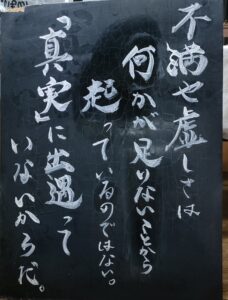 不満や虚しさは
何かが足りないことから
起っているのではない。
「真実」に出遇って
いないからだ。